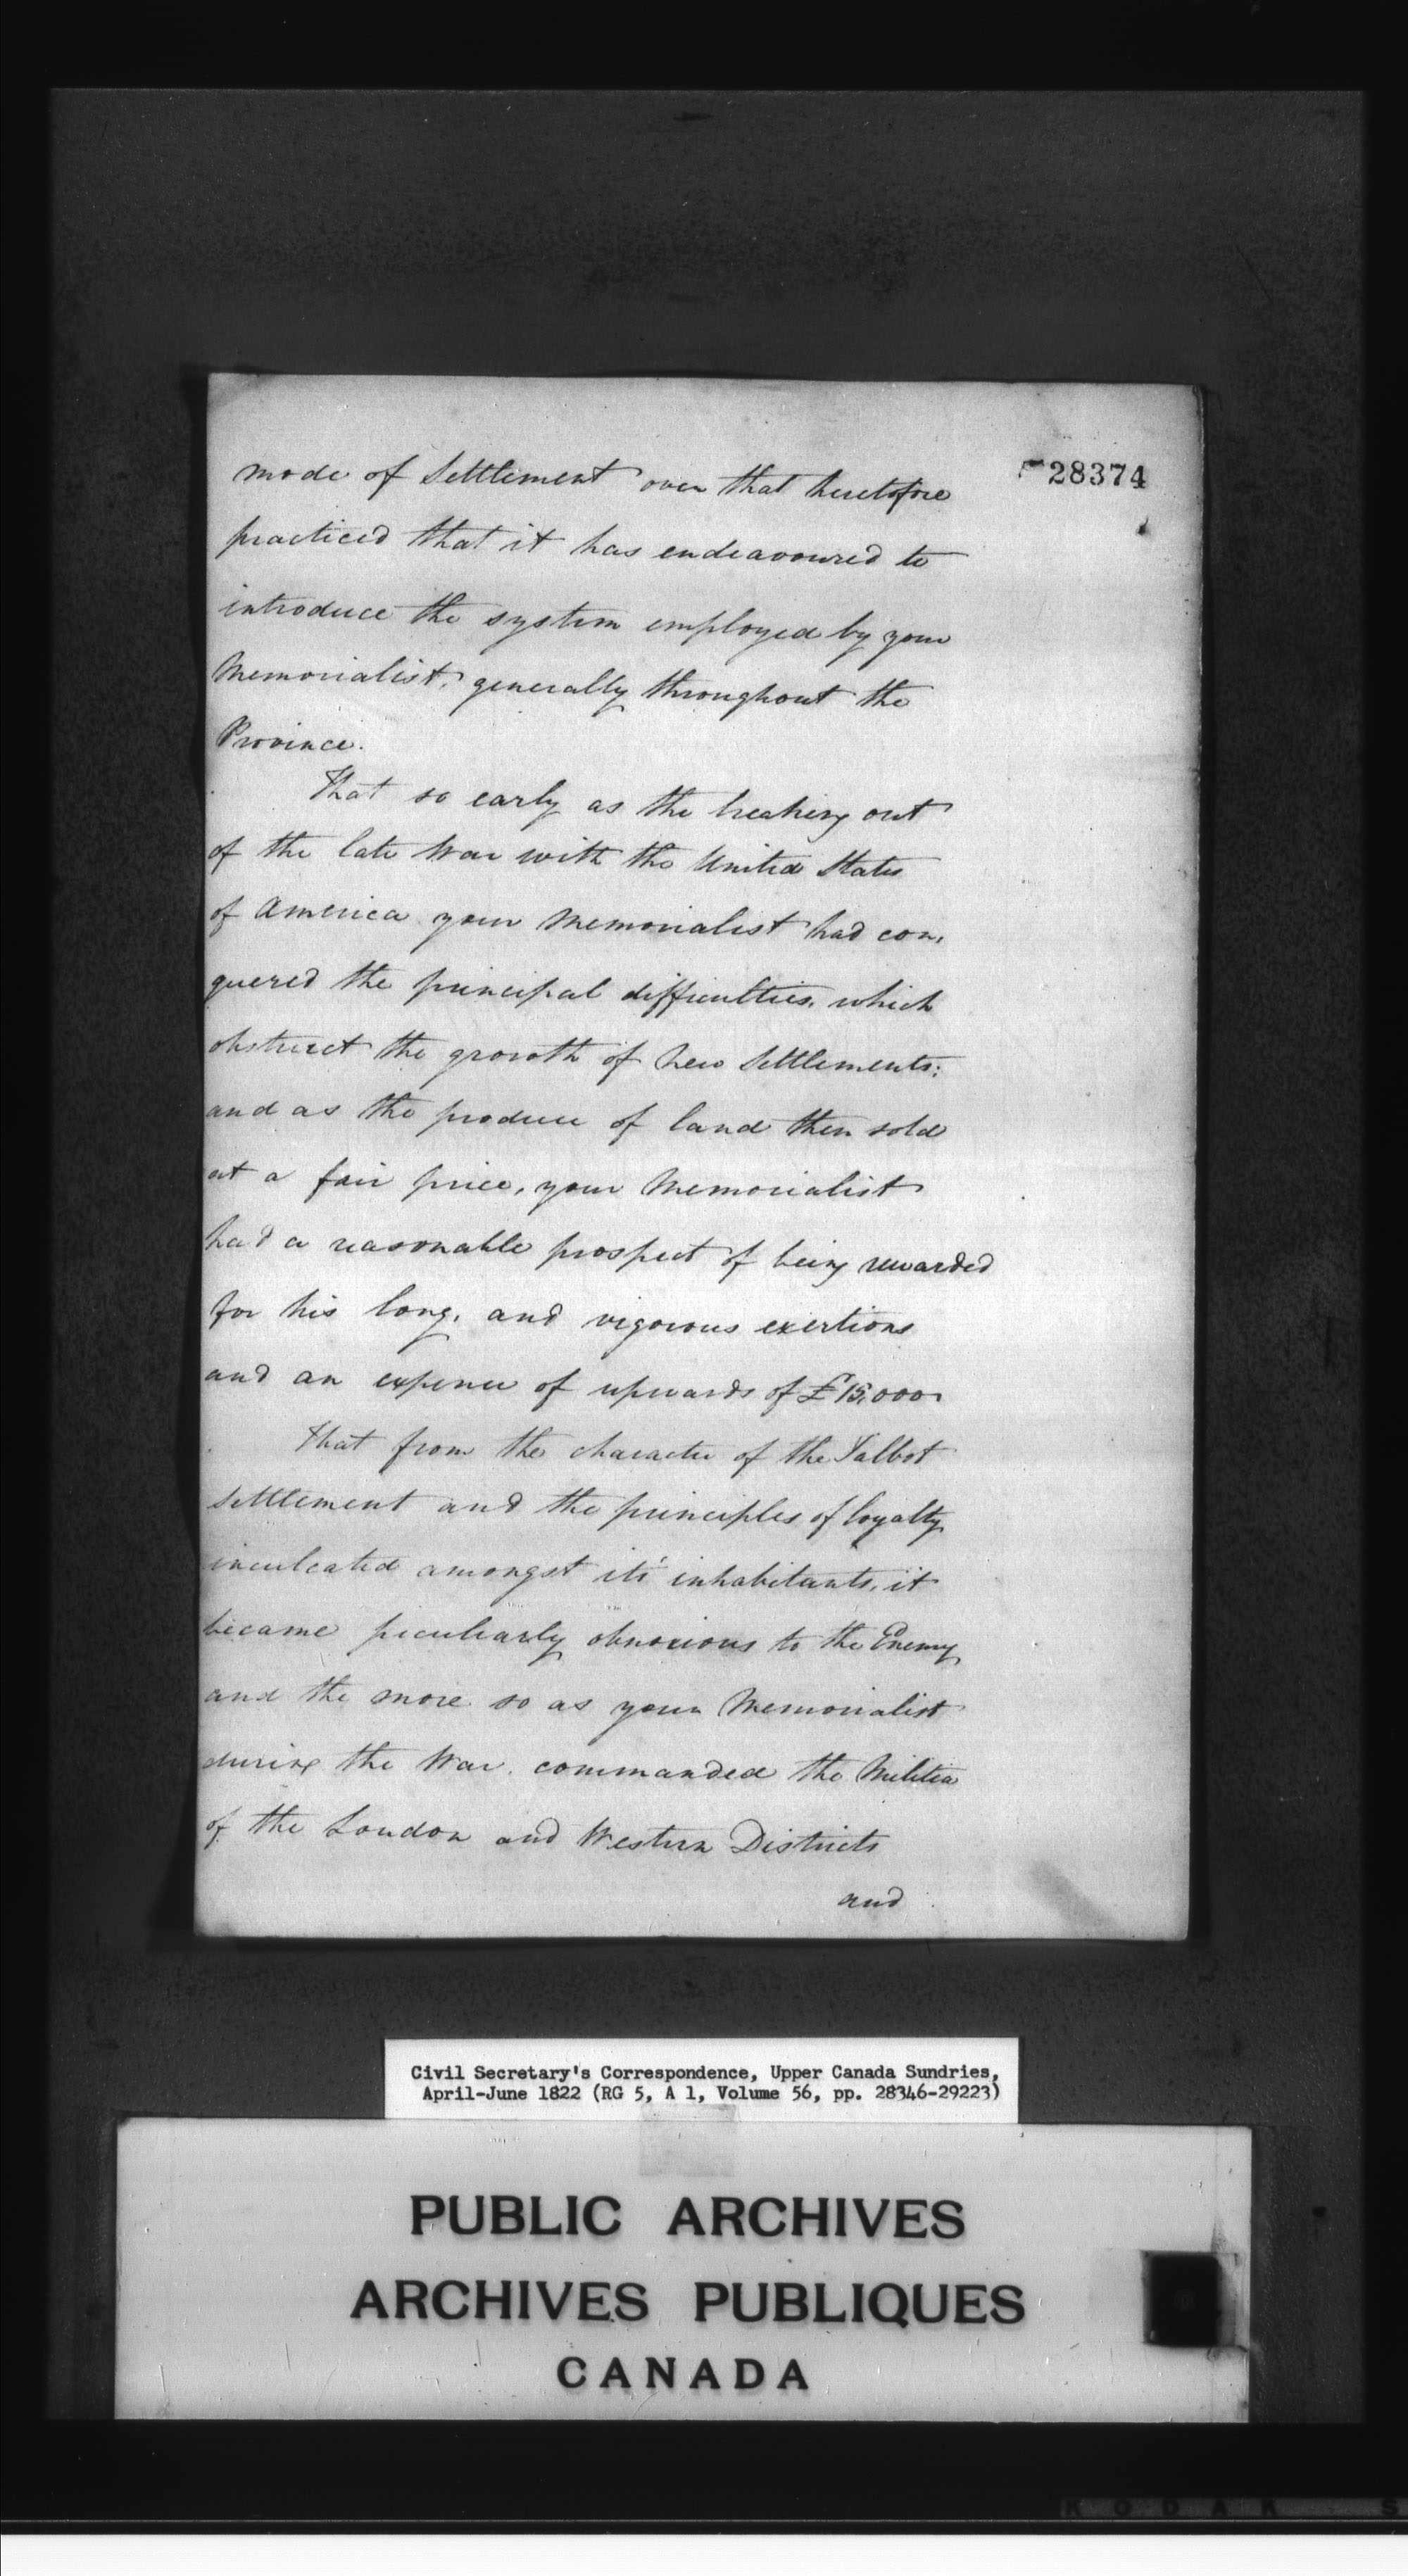 28374
mode of Settlement over that heretofore
practiced that it has endeavoured to
introduce the system employed by your
Memorialist, generally throughout the
Province.
That so early as the breaking out
of the late War with the United States
of America your Memorialist had con,
quered the principal difficulties, which
obstruct the growth of new Settlements;
and as the produce of land then sold
at a fair price, your Memorialist
had a reasonable prospect of being rewarded
for his long, and vigorous exertions
and an expence of upwards of £15,000.
That from the character of the Talbot
Settlement and the principles of loyalty
inculcated amongst its' inhabitants, it
became peculiarly obnoxious to the Enemy
and the more so as your Memorialist
during the War, commanded the Militia
of the London and Western Districts
and
Civil Secretary's Correspondence, Upper Canada Sundries,
April-June 1822 (RG 5, A 1, Volume 56, pp. 28346-29223)
PUBLIC ARCHIVES
ARCHIVES PUBLIQUES
CANADA
KODAK S